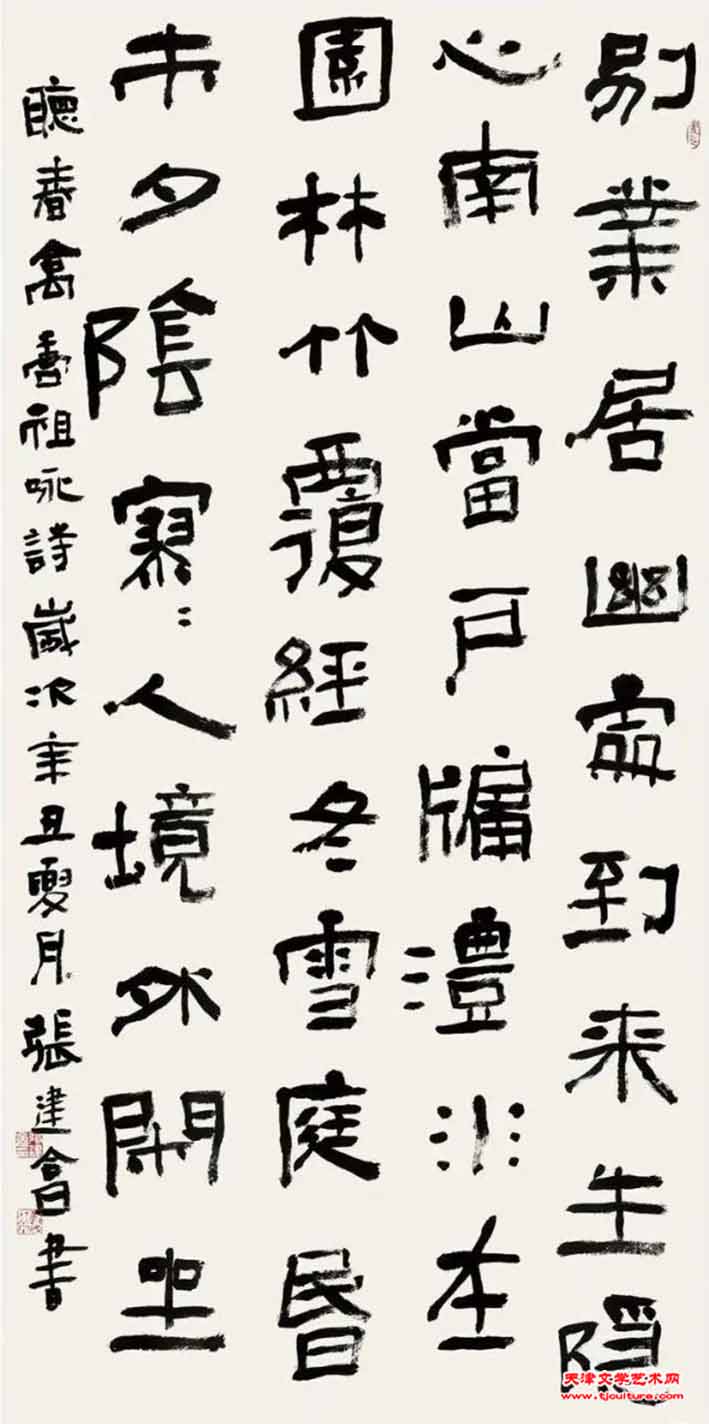 别業居幽處到来生隐
心南山當户牖澧水在
園林竹覆經冬雪庭昏
未夕陰寥〻人境外閑坐
聽春禽唐祖咏詩歲次辛丑夏月張建會書
天津文学艺术网
www.tjculture.com